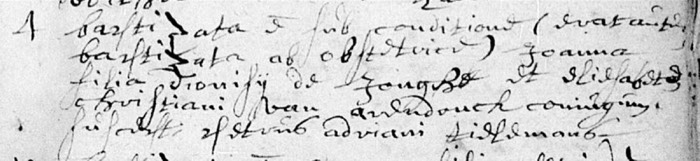 4 baptizata e sub conditione (erat autem
baptizata ab obstetrice) Joanna
filia Dionisij de Jonghe et Elisabeth
Christiani van Arendonck coniugum.
suscepit Petrus Adriani Tielemans